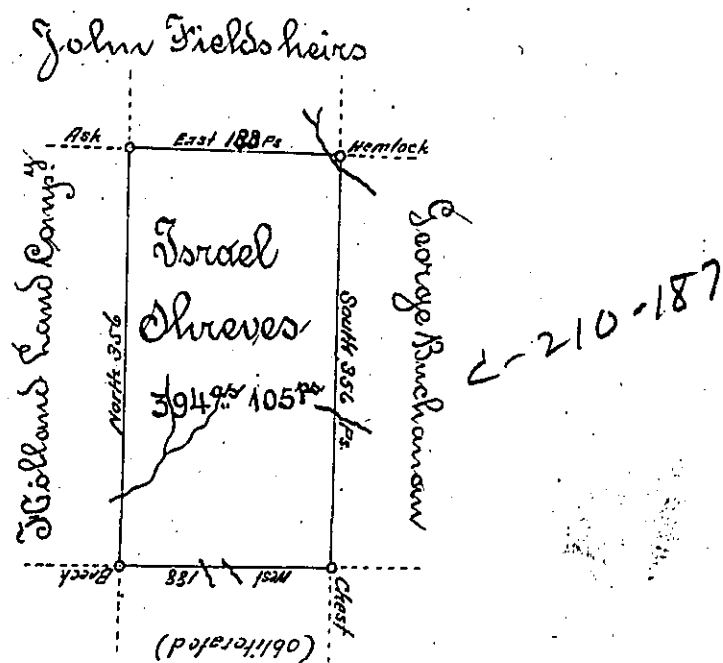 John Fields heirs
Ash East 188 Ps Hemlock
Holland Land Compy.
North 356
Israel
Shreves
394 as 105 ps
South 356 Ps.
George Buchanan
C-210-187
Beech 188 West Chest
(obliterated)